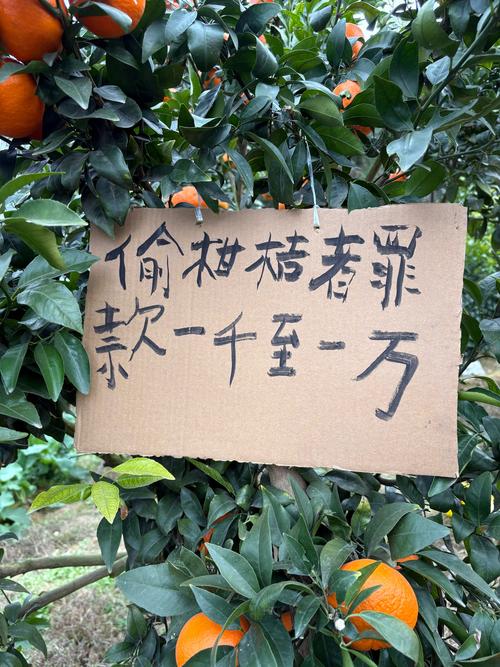 偷柑桔者罪
款一千至一万